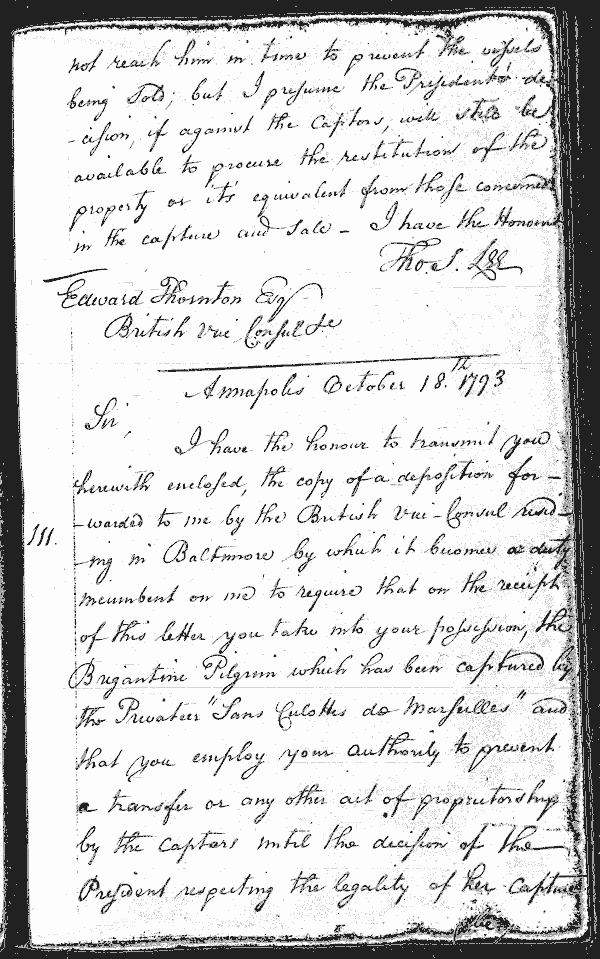 not reach him in time to prevent the vessels
being Sold; but I presume the President's de-
-cision, if against the Captors, will still be
available to procure the restitution of the
property or it's equivalent from those concerned
in the capture and Sale - I have the Honour &
Tho. S. Lee
Edward Thornton Esqr
British Vice Consul &c
Annapolis October 18.th 1793
Sir,
I have the honour to transmit you
herewith enclosed, the copy of a deposition for-
-warded to me by the British Vice-Consul resid-
111.
-ing in Baltimore by which it becomes a duty
incumbent on me to require that on the receipt
of this letter you take into your possession, the
Brigantine Pilgrim which has been captured by
the Privateer "Sans Culottes de Marseilles" and
that you employ your authority to prevent
a transfer or any other act of proprietorship
by the Captors until the decision of the
President respecting the legality of her Capture